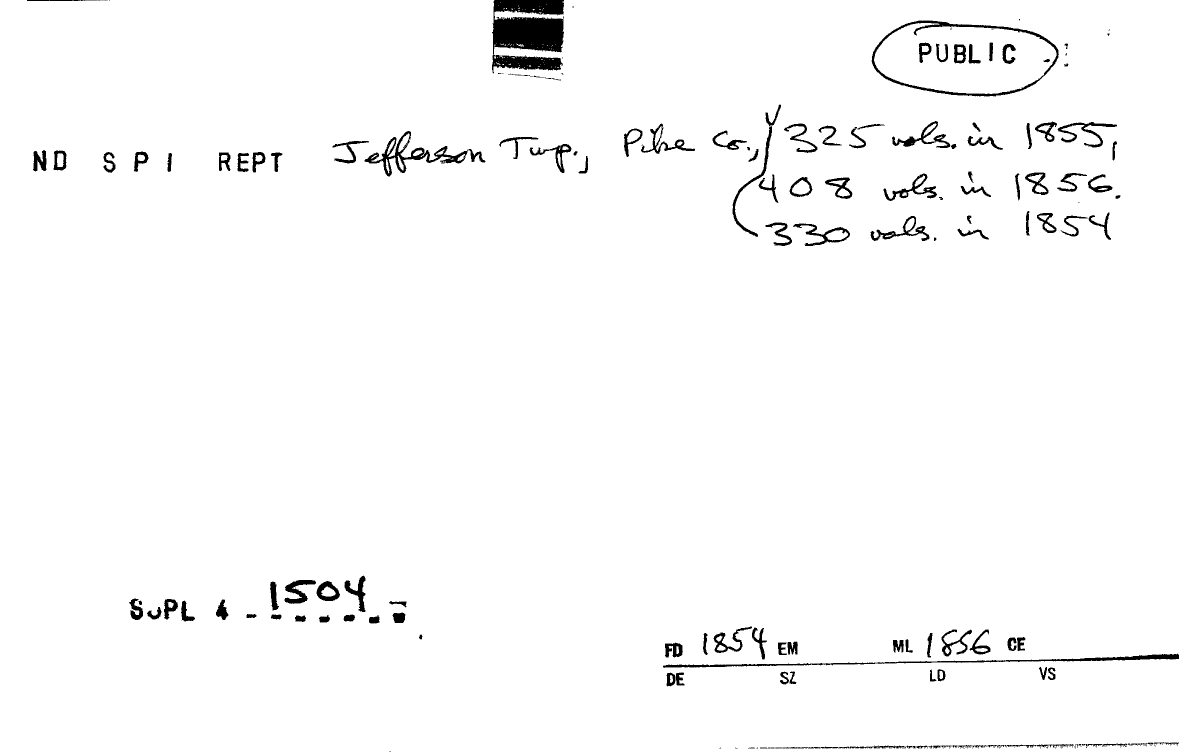 PUBLIC
ND S P I REPT Jefferson Twp., Pike Co., 325 vols. in 1855,
408 vols. in 1856.
330 vols. in 1854
SUPL 4 - 1504
FD 1854 EM ML 1856 CE
DE SZ LD VS